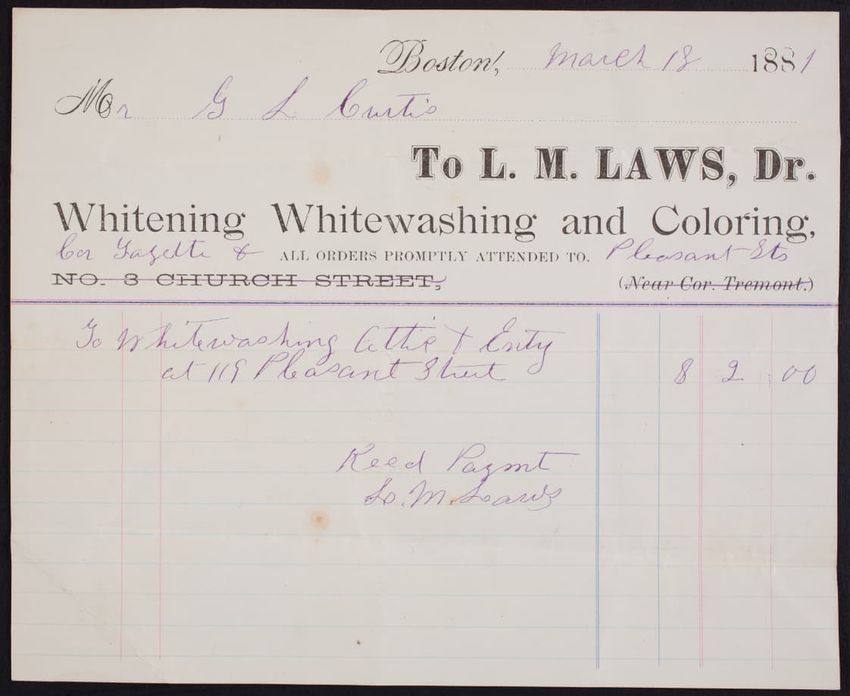 Boston, March 18 1881
Mr G L Curtis
To L. M. LAWS, Dr.
Whitening Whitewashing and Coloring,
Cor Fayette & ALL ORDERS PROMPTLY ATTENDED TO. Pleasant Sts
NO. 3 CHURCH STREET, (Near Cor. Tremont.)
To Whitewashing Attic & Entry
at 119 Pleasant Street 8 2 00
Recd Paymt
L. M. Laws